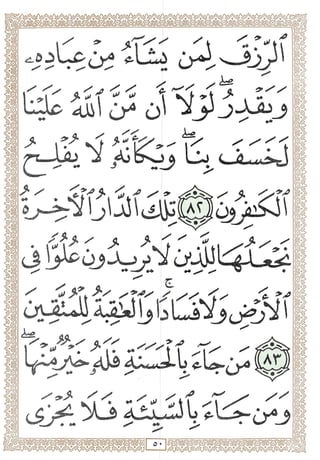 ٱلرِّزْقَ لِمَن يَشَآءُ مِنْ عِبَادِهِۦ
وَيَقْدِرُ ۖ لَوْلَآ أَن مَّنَّ ٱللَّهُ عَلَيْنَا
لَخَسَفَ بِنَا ۖ وَيْكَأَنَّهُۥ لَا يُفْلِحُ
ٱلْكَٰفِرُونَ ٨٢ تِلْكَ ٱلدَّارُ ٱلْأٓخِرَةُ
نَجْعَلُهَا لِلَّذِينَ لَا يُرِيدُونَ عُلُوًّا فِى
ٱلْأَرْضِ وَلَا فَسَادًا ۚ وَٱلْعَٰقِبَةُ لِلْمُتَّقِينَ
٨٣ مَن جَآءَ بِٱلْحَسَنَةِ فَلَهُۥ خَيْرٌ مِّنْهَا ۖ
وَمَن جَآءَ بِٱلسَّيِّئَةِ فَلَا يُجْزَى
٥٠